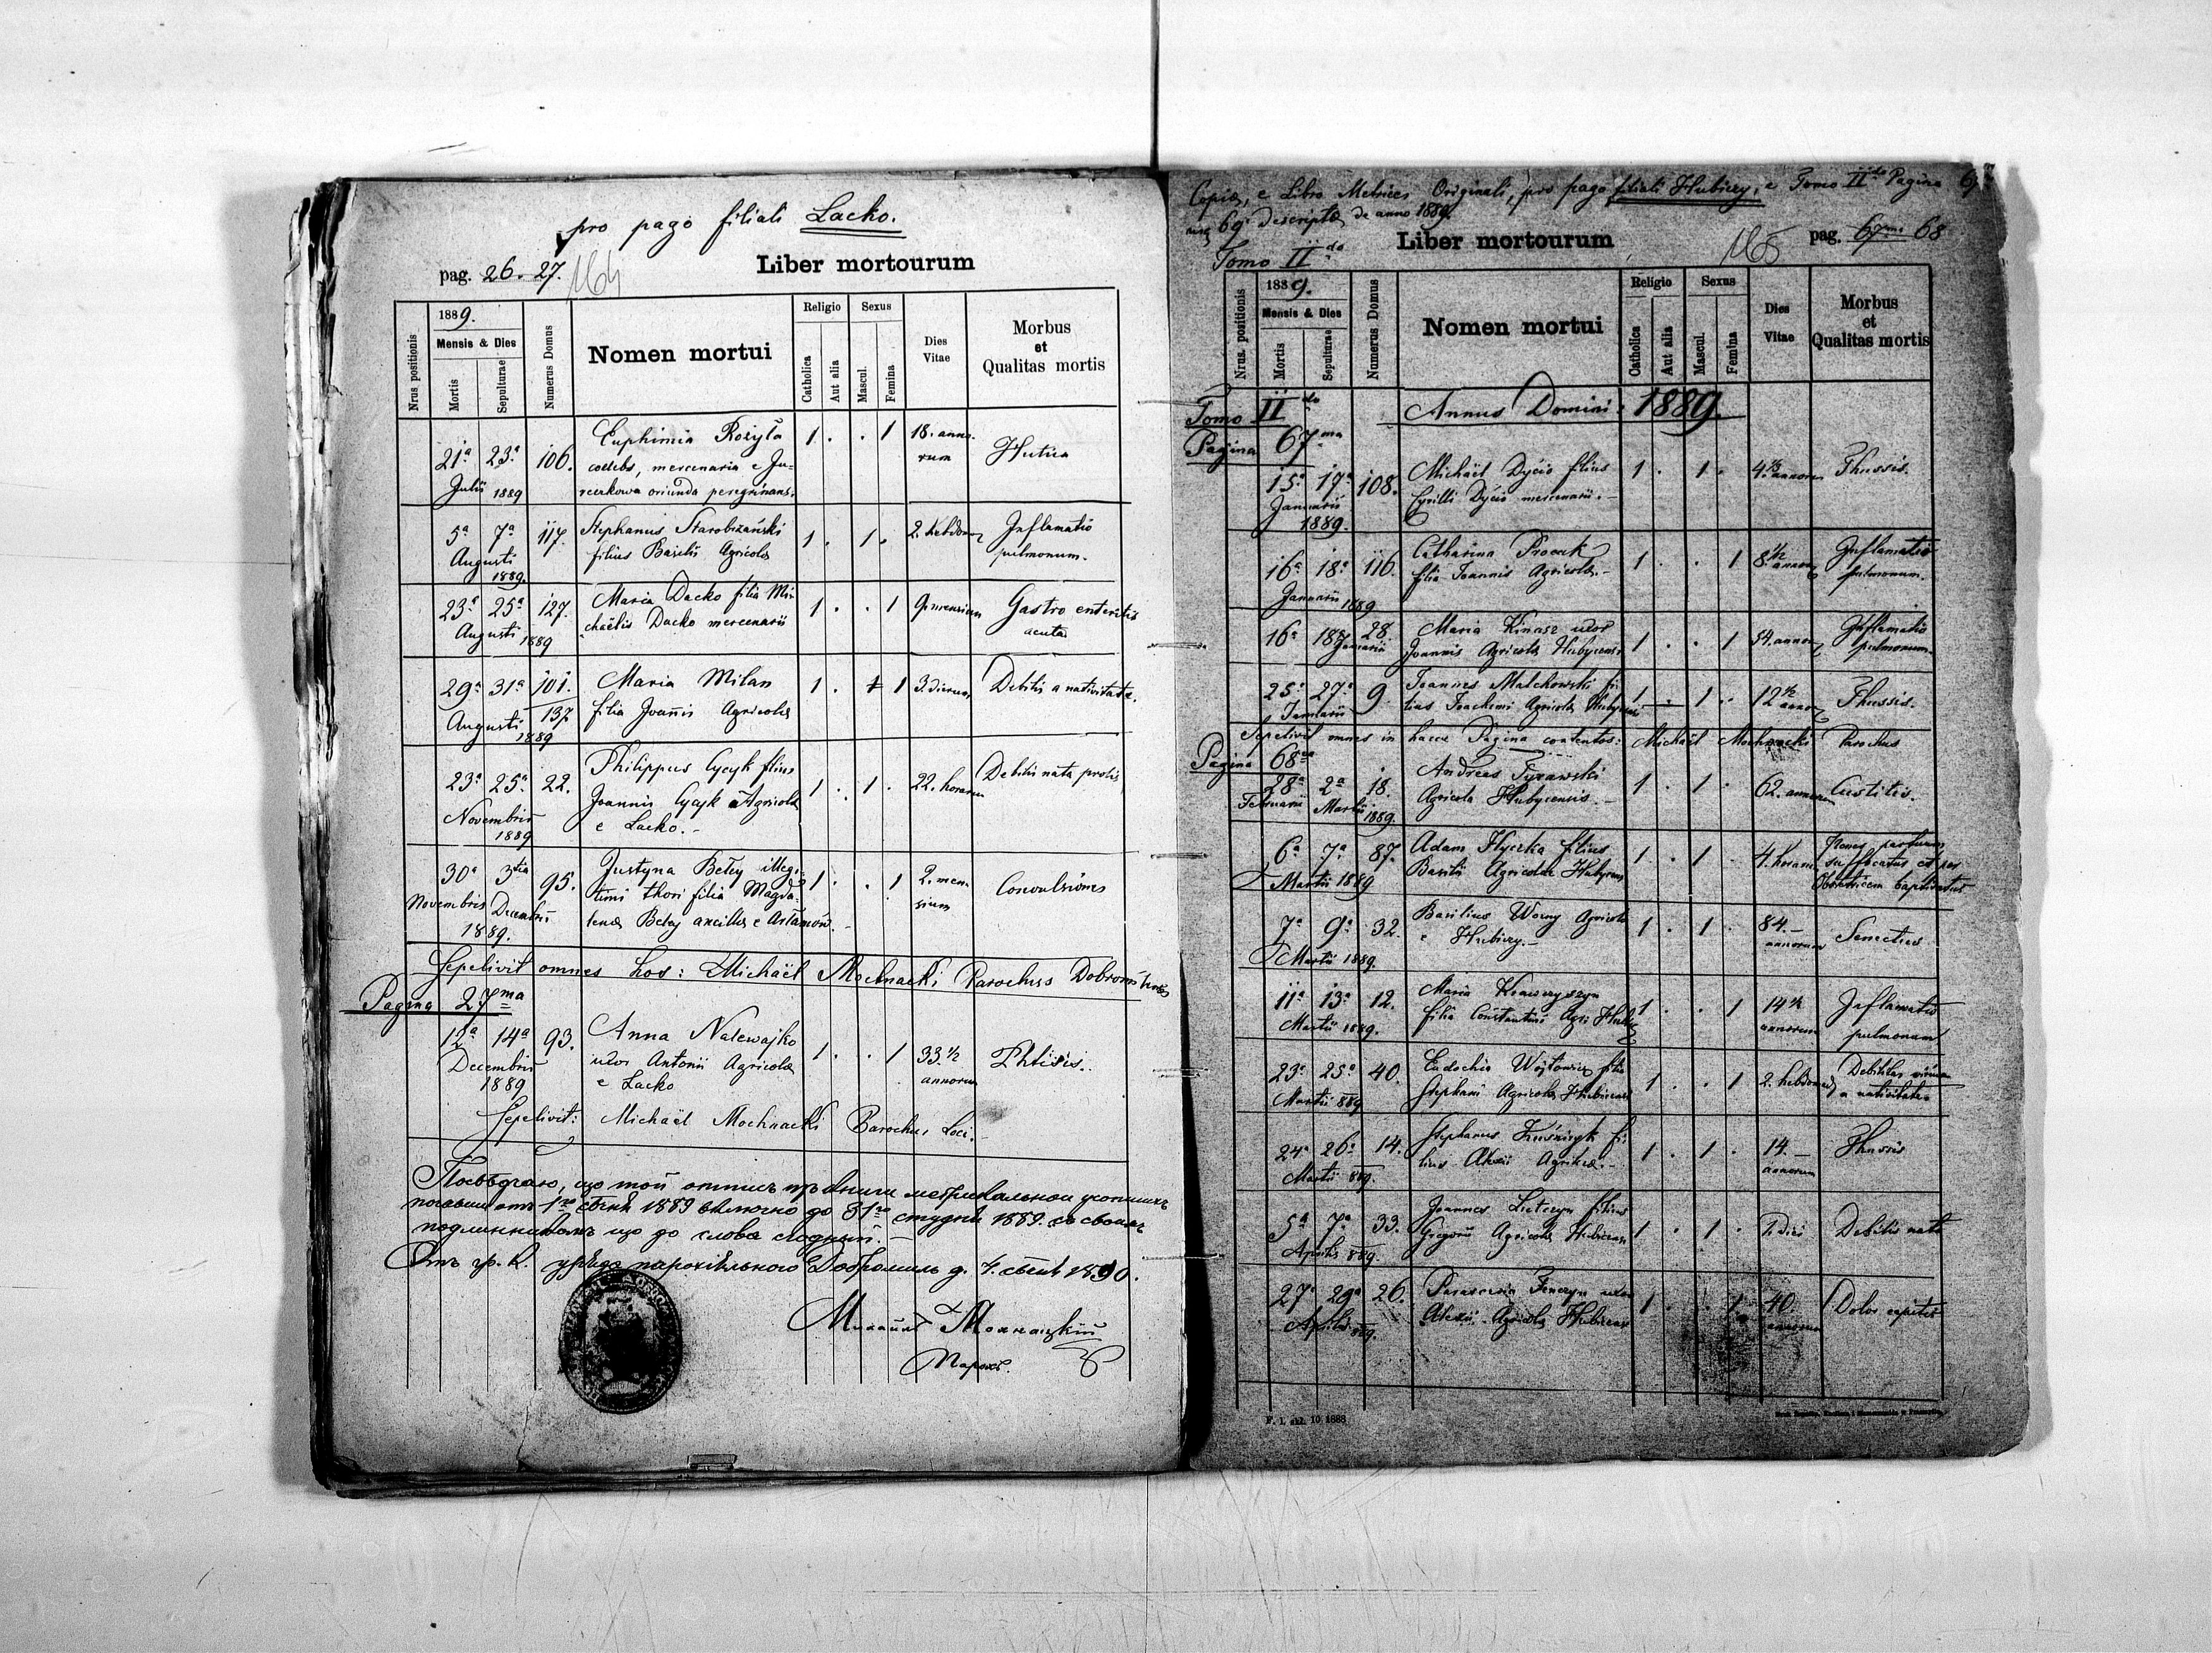 pro pago filiali Lacko.
pag. 26. 27. 164
Liber mortourum
Nrus positionis
1889.
Mensis & Dies
Mortis
Sepulturae
Numerus Domus
Nomen mortui
Religio
Catholica
Aut alia
Sexus
Mascul.
Femina
Dies Vitae
Morbus
et
Qualitas mortis
21a 23a 106. Euphimia Rożyła 1 . . 1 18. anno-
Julii 1889 coelebs, mercenaria e Ju- rum
reczkowa oriunda peregrinans.
5a 7a 117. Stephanus Starobrzański 1 . 1 . 2. hebdom Inflamatio
Augusti 1889. filius Basilii Agricolae pulmonum.
23a 25a 127. Maria Dacko filia Mi- 1 . . 1 9. mensium Gastro enteritis
Augusti 1889 chaëlis Dacko mercenarii acuta
29a 31a 101. Maria Milan 1 . 1 3. dierum Debilis a nativitate.
Augusti 1889 137 filia Joannis Agricolae
23a 25a 22. Philippus Cycyk filius 1 . 1 . 22. horarum Debilis nata prolis
Novembris 1889 Joannis Cycyk Agricolae
e Lacko.-
30a 3tia 95. Justyna Betey illegi- 1 . . 1 2. men- Convulsiones
Novembris Decembris timi thori filia Magda- sium
1889. lenae Betey ancillae e Artamow.
Sepelivit omnes hos: Michaël Mochnacki Parochus
Pagina 27ma
12a 14a 93. Anna Nalewajko 1 . . 1 33 1/2 Phtisis.
Decembris 1889 uxor Antonii Agricolae annorum
e Lacko
Sepelivit: Michaël Mochnacki Parochus Loci.
що той отписъ книги метрикальнои
1го 1889 включно до 31го студня 1889. со своимъ
що до слова
Отъ гр. к. уряда парохіяльного Добромиль д. 1890.
Михаилъ Мохнацкій
Парохъ.
Copia, e Libro Metrices Originali, pro pago filiali Hubicey, e Tomo IIdo Pagina 67
69 descripta de anno 1889.
Tomo IIdo
Liber mortourum
165 pag. 67ma 68
Nrus. positionis
1889.
Mensis & Dies
Mortis
Sepulturae
Numerus Domus
Nomen mortui
Religio
Catholica
Aut alia
Sexus
Mascul.
Femina
Dies Vitae
Morbus
et
Qualitas mortis
Tomo IIdo Annus Domini 1889.
Pagina 67ma
15a 17a 108. Michaël Dycio filius 1 . 1 . 4 annorum Thussis.
Januarii 1889. Cyrilli Dycio mercenarii.-
16a 18a 116. Catharina Procak 1 . . 1 8 1/2 annorum Inflamatio
Januarii 1889 filia Joannis Agricolae.- pulmonum.
16a 18a 28. Maria Kinasz uxor 1 . . 1 54. annorum Inflamatio
Januarii Joannis Agricolae pulmonum.
25a 27a 9 Joannes Malchowski fi- 1 . 1 . 12 1/2 annorum Thussis.
Januarii lius Joachimi Agricolae
Sepelivit omnes in hacce Pagina contentos: Michaël Mochnacki Parochus
Pagina 68va
28a 2a 18. Andreas Tyrawski 1 . 1 . 62. annorum
Februarii Martii 1889. Agricola Hubycensis.-
6a 7a 87. Adam Hyczka filius 1 . 1 4. horarum
Martii 1889 Basilii Agricolae suffocatus
Obstetricem baptisatus
7a 9a 32. Basilius Worny Agricola 1 . 1 . 84.- Senectus
Martii 1889. e Hubicey.- annorum
11a 13a 12. Maria Krawczyszyn 1 . . 1 14 1/2 Inflamatio
Martii 1889. filia Constantini annorum pulmonum
23a 25a 40. Eudochia Wojtowicz filia 1 . . 1 2. hebdomad Debilitas virium
Martii 889 Stephani Agricolae a nativitate
24a 26a 14. Stephanus fi- 1 . 1 . 14.- Thussis
Martii 889. lius Alexii Agricolae.- annorum
5a 7a 33. Joannes filius 1 . 1 . 1. diei Debilis nata
Aprilis 889. Gregorii Agricolae
27a 29a 26. Parascevia uxor 1 . . 1 40. Dolor capitis
Aprilis 889. Alexii Agricolae annorum
F. 1. skł. 10. 1888